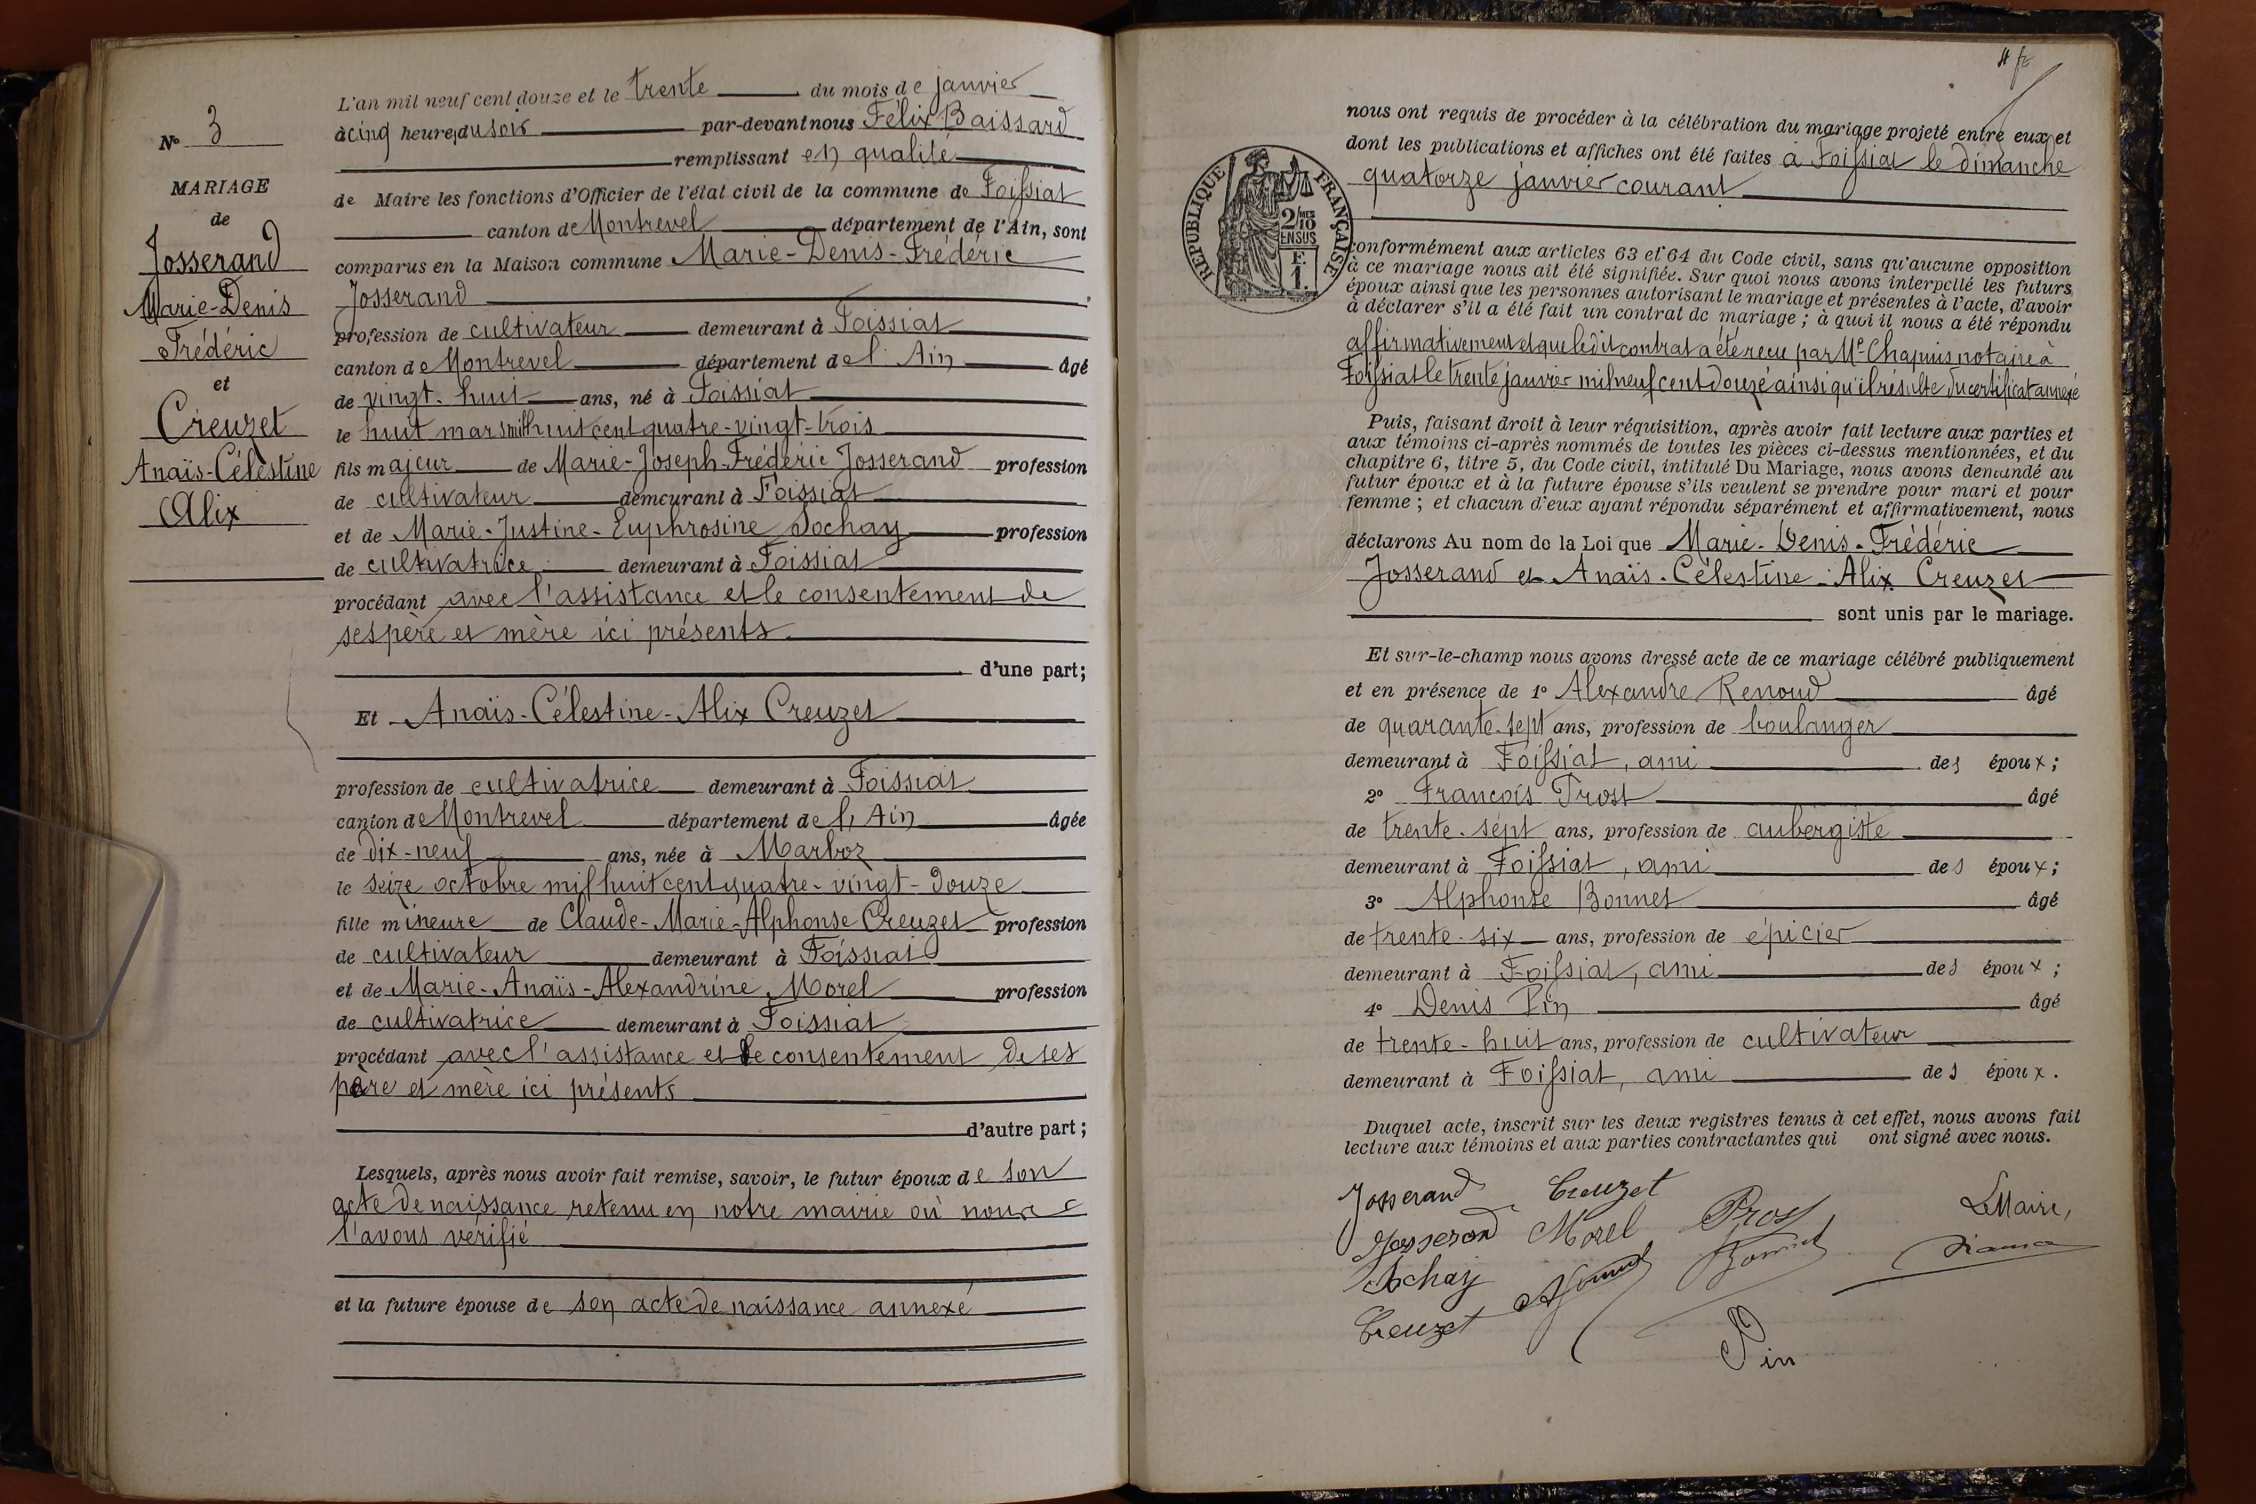 N° 3
MARIAGE
de
Josserand
Marie-Denis
Frédéric
et
Creuzet
Anaïs-Célestine
Alix
L'an mil neuf cent douze et le trente du mois de janvier
à cinq heures du soir par-devant nous Félix Baissard
remplissant en qualité
de Maire les fonctions d'Officier de l'état civil de la commune de Foissiat
canton de Montrevel département de l'Ain, sont
comparus en la Maison commune Marie-Denis-Frédéric
Josserand
profession de cultivateur demeurant à Foissiat
canton de Montrevel département de l'Ain âgé
de vingt-huit ans, né à Foissiat
le huit mars mil huit cent quatre-vingt-trois
fils majeur de Marie-Joseph-Frédéric Josserand profession
de cultivateur demeurant à Foissiat
et de Marie-Justine-Euphrosine Sochay profession
de cultivatrice demeurant à Foissiat
procédant avec l'assistance et le consentement de
ses père et mère ici présents
d'une part;
Et Anaïs-Célestine-Alix Creuzet
profession de cultivatrice demeurant à Foissiat
canton de Montrevel département de l'Ain âgée
de dix-neuf ans, née à Marboz
le seize octobre mil huit cent quatre-vingt-douze
fille mineure de Claude-Marie-Alphonse Creuzet profession
de cultivateur demeurant à Foissiat
et de Marie-Anaïs-Alexandrine Morel profession
de cultivatrice demeurant à Foissiat
procédant avec l'assistance et le consentement de ses
père et mère ici présents
d'autre part;
Lesquels, après nous avoir fait remise, savoir, le futur époux de son
acte de naissance retenu en notre mairie où nous
l'avons vérifié
et la future épouse de son acte de naissance annexé
nous ont requis de procéder à la célébration du mariage projeté entre eux et
dont les publications et affiches ont été faites à Foissiat le dimanche
quatorze janvier courant
RÉPUBLIQUE FRANÇAISE
2/10 MES
EN SUS
F.
1.
conformément aux articles 63 et 64 du Code civil, sans qu'aucune opposition
à ce mariage nous ait été signifiée. Sur quoi nous avons interpellé les futurs
époux ainsi que les personnes autorisant le mariage et présentes à l'acte, d'avoir
à déclarer s'il a été fait un contrat de mariage; à quoi il nous a été répondu
affirmativement et que ledit contrat a été reçu par Me Chapuis notaire à
Foissiat le trente janvier mil neuf cent douze ainsi qu'il résulte du certificat annexé
Puis, faisant droit à leur réquisition, après avoir fait lecture aux parties et
aux témoins ci-après nommés de toutes les pièces ci-dessus mentionnées, et du
chapitre 6, titre 5, du Code civil, intitulé Du Mariage, nous avons demandé au
futur époux et à la future épouse s'ils veulent se prendre pour mari et pour
femme; et chacun d'eux ayant répondu séparément et affirmativement, nous
déclarons Au nom de la Loi que Marie-Denis-Frédéric
Josserand et Anaïs-Célestine-Alix Creuzet
sont unis par le mariage.
Et sur-le-champ nous avons dressé acte de ce mariage célébré publiquement
et en présence de 1° Alexandre Renoud âgé
de quarante-sept ans, profession de boulanger
demeurant à Foissiat, ami des époux;
2° François Prost âgé
de trente-sept ans, profession de aubergiste
demeurant à Foissiat, ami des époux;
3° Alphonse Bonnet âgé
de trente-six ans, profession de épicier
demeurant à Foissiat, ami des époux;
4° Denis Pin âgé
de trente-huit ans, profession de cultivateur
demeurant à Foissiat, ami des époux.
Duquel acte, inscrit sur les deux registres tenus à cet effet, nous avons fait
lecture aux témoins et aux parties contractantes qui ont signé avec nous.
Josserand Creuzet
Josserand Morel Prost
Le Maire,
Sochay Bonnet
Creuzet
Pin